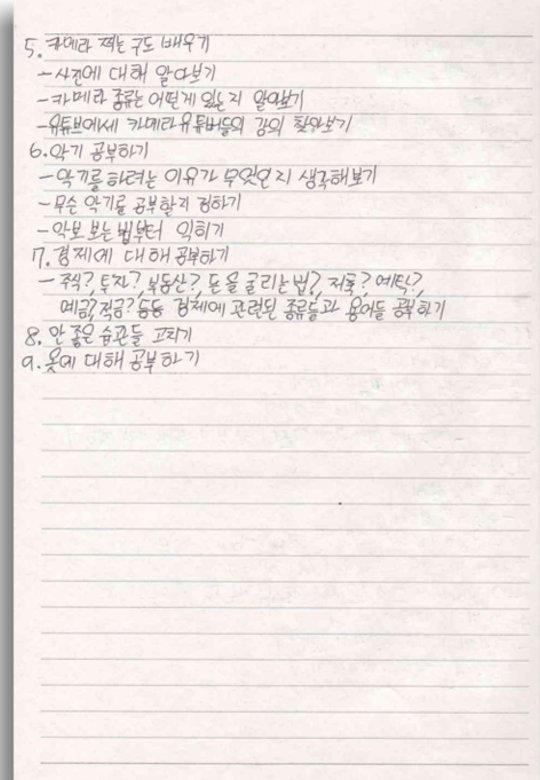 5. 카메라 찍는 구도 배우기
- 사진에 대해 알아보기
- 카메라 종류는 어떤게 있는지 알아보기
- 유튜브에서 카메라 유튜버들의 강의 찾아보기
6. 악기 공부하기
- 악기를 하려는 이유가 무엇인지 생각해보기
- 무슨 악기를 공부할지 정하기
- 악보 보는 법부터 익히기
7. 경제에 대해 공부하기
- 주식? 투자? 부동산? 돈을 굴리는 법? 저축? 예탁?
예금? 적금? 등등 경제에 관련된 종류들과 용어들 공부하기
8. 안 좋은 습관들 고치기
9. 옷에 대해 공부하기